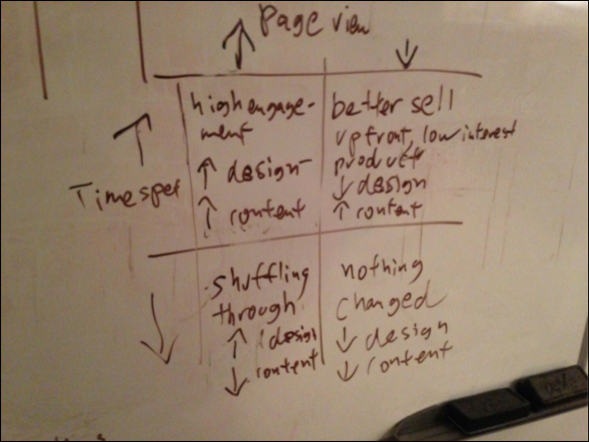 ↑ Page view ↓
↑
high engage-
ment
↑ design
↑ content
better sell
upfront, low interest
product
↓ design
↑ content
Time spet
↓
shuffling
through
↑ design
↓ content
nothing
changed
↓ design
↓ content